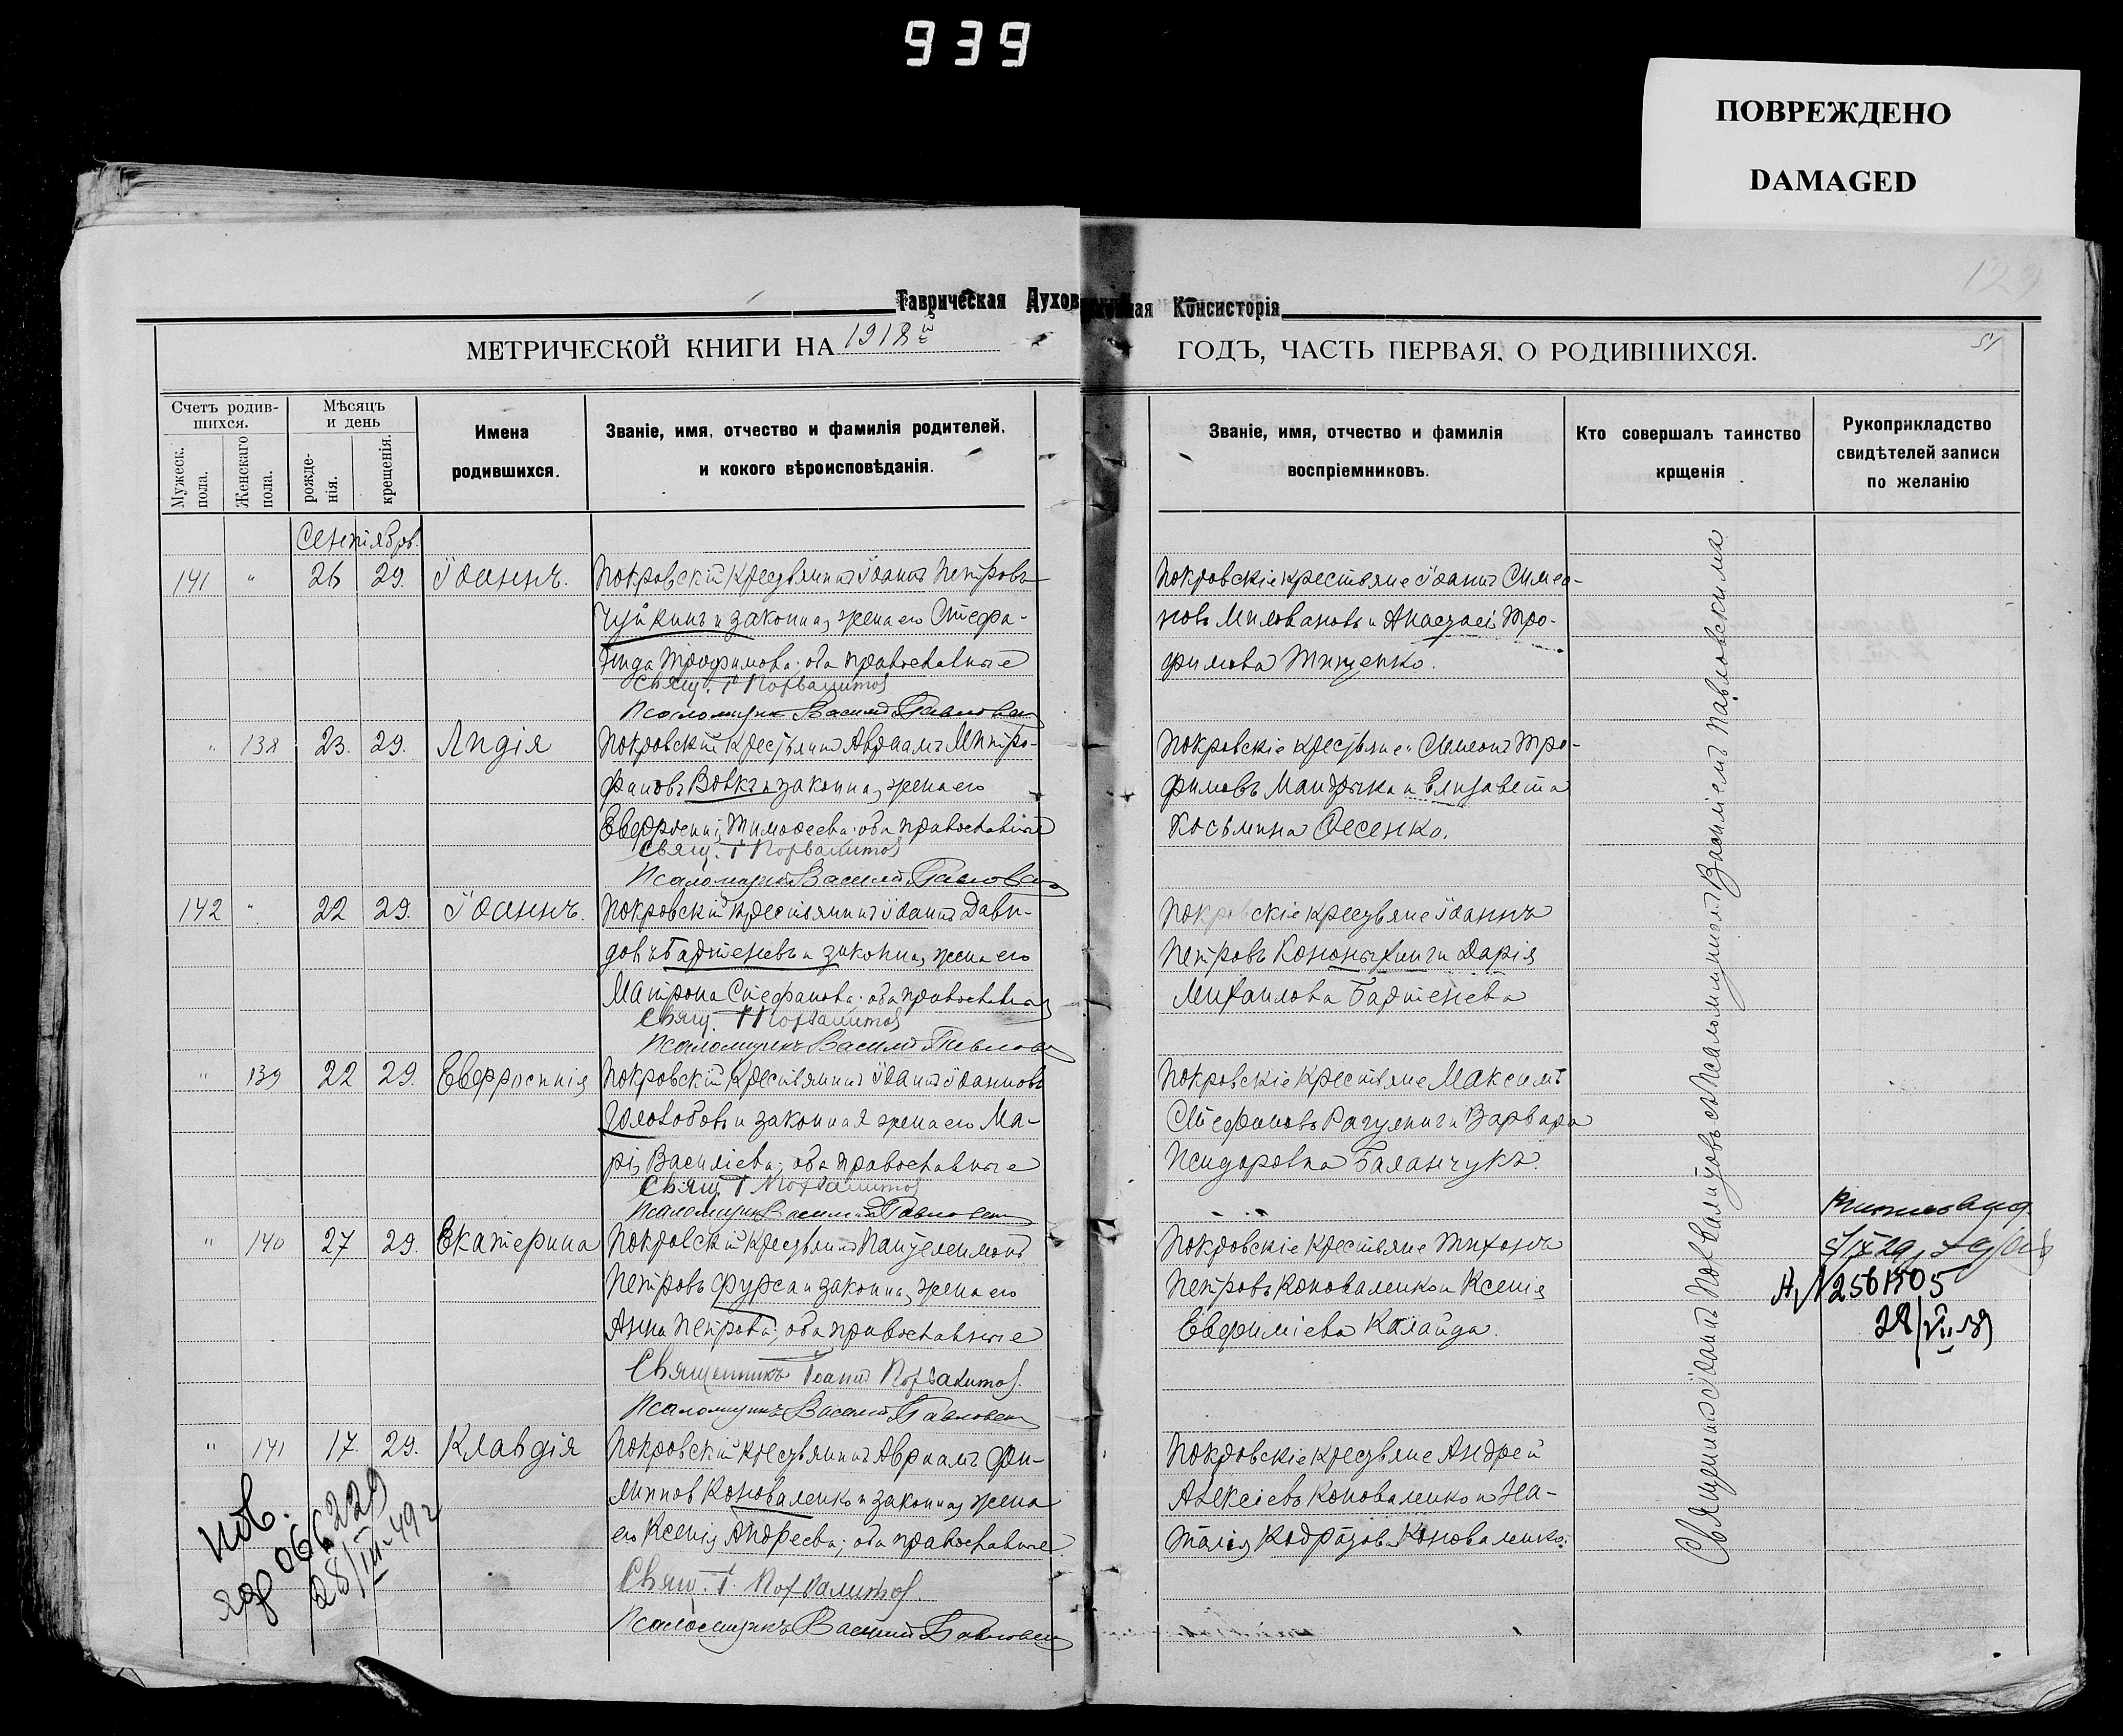 939
ПОВРЕЖДЕНО
DAMAGED
Таврическая Духовная Консисторія
МЕТРИЧЕСКОЙ КНИГИ НА 1918й
ГОДЪ, ЧАСТЬ ПЕРВАЯ, О РОДИВШИХСЯ.
Счетъ родив-
шихся.
Мужеск. пола.
Женскаго пола.
Мѣсяцъ
и день
рожде-
нія.
крещенія.
Имена
родившихся.
Званіе, имя, отчество и фамилія родителей,
и кокого вѣроисповѣданія.
Званіе, имя, отчество и фамилія
воспріемниковъ.
Кто совершалъ таинство
крщенія
Рукоприкладство
свидѣтелей записи
по желанію
Сентябрь.
141 " 26 29. Іоаннъ. Покровскій крестьянинъ Іоаннъ Петровъ
Чуйкинъ и законная жена его Стефа-
нида Трофимова; оба православные
Свящ. І Похвалитов
Псаломщикъ Василій Павловскій
Покровскіе крестьяне Іоаннъ Симео-
новъ Миловановъ и Анастасія Тро-
фимова Тищенко.
" 138 23. 29. Лидія Покровскій крестьянинъ Авраамъ Митро-
фановъ Вовкъ и законная жена его
Евфросинія Тимофеева; оба православные
Свящ. І Похвалитов
Псаломщикъ Василій Павловскій
Покровскіе крестьяне: Симеонъ Тро-
фимовъ Мандрыка и Елизавета
Косьмина Фесенко.
142 " 22 29. Іоаннъ. Покровскій крестьянинъ Іоаннъ Дави-
довъ Бартеневъ и законная жена его
Матрона Стефанова; оба православныя
Свящ. І Похвалитов
Псаломщикъ Василій Павловскій
Покровскіе крестьяне Іоаннъ
Петровъ Кононыхинъ и Дарія
Михаилова Бартенева
" 139 22 29. Евфросинія Покровскій крестьянинъ Іоаннъ Іоанновъ
и законная жена его Ма-
рія Василіева; оба православные
Свящ. І Похвалитов
Псаломщикъ Василій Павловскій
Покровскіе крестьяне Максимъ
Стефановъ Рагулинъ и Варвара
Исидоровна Баланчукъ.
" 140 27 29. Екатерина Покровскій крестьянинъ Пантелеимонъ
Петровъ Фурса и законная жена его
Анна Петрова; оба православные
Священникъ Іоаннъ Похвалитов.
Псаломщикъ Василій Павловскій
Покровскіе крестьяне Тихонъ
Петровъ Коноваленко и Ксенія
Евфиміева Калайда.
Н, № 2561505
28/VII 39
" 141 17. 29. Клавдія Покровскій крестьянинъ Авраамъ Фи-
липпов Коноваленко и законная жена
его Ксенія Андреева; оба православные.
Свящ. І. Похвалитов.
Псаломщикъ Василій Павловскій
Покровскіе крестьяне Андрей
Алексіевъ Коноваленко и На-
талія Кодратова Коноваленко.
Священникъ Іоаннъ Похвалитовъ съ Псаломщикомъ Василіемъ Павловскимъ
пов.
066229
28/III-49 г